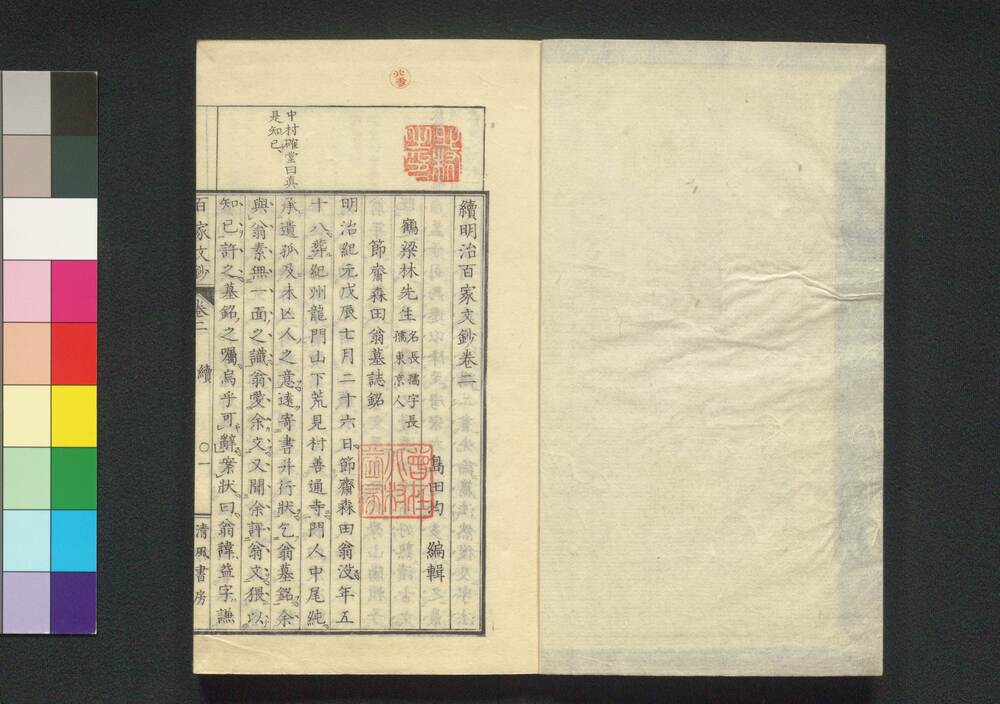 續明治百家文鈔卷二
島田均 編輯
鶴梁林先生 名長孺字長
孺東京人
節齋森田翁墓誌銘
明治紀元戊辰七月二十六日節齋森田翁没年五
十八葬紀州龍門山下荒見村善通寺門人中尾純
承遺孤及未亡人之意遠寄書并行狀乞翁墓銘余
與翁素無一面之識翁愛余文又聞余評翁文猥以
知已許之墓銘之囑烏乎可辭案狀曰翁諱益字謙
中村確堂曰真
是知已
百家文鈔 卷二 續 〇一 清風書房